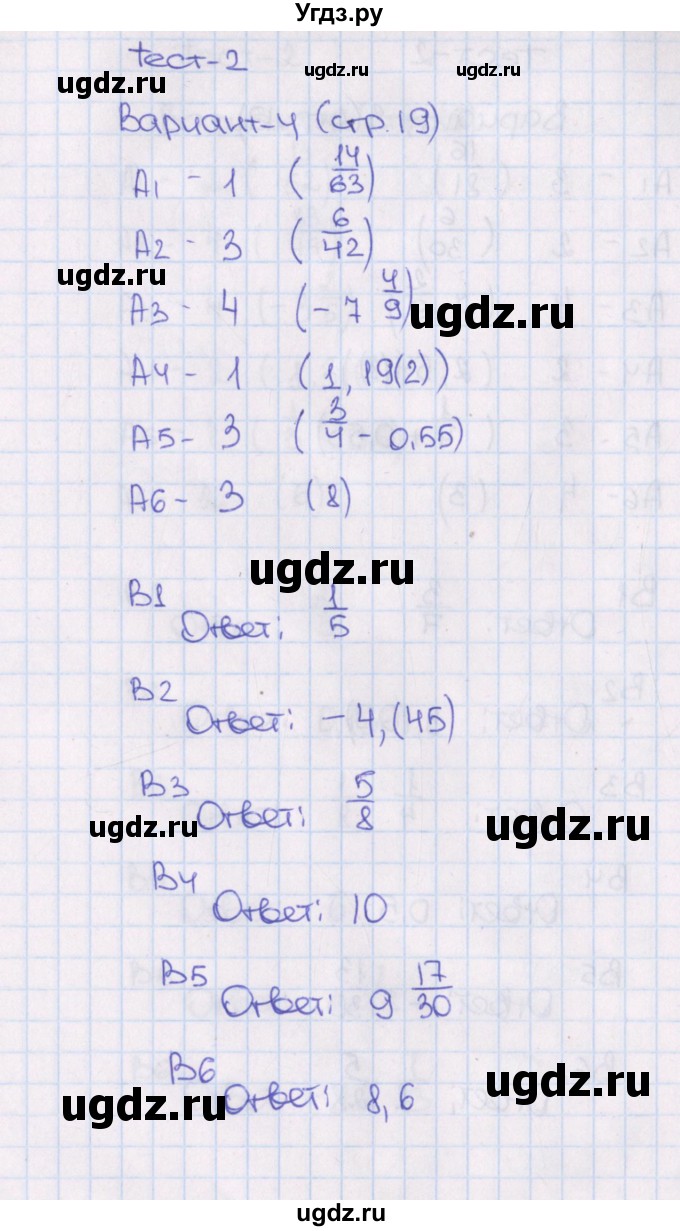 Угдз.ру
тест-2
ugdz.ru ugdz.ru ugdz.ru
Вариант-4 (стр.19)
A1 - 1 (14/63)
A2 - 3 (6/42)
ugdz.ru
A3 - 4 (-7 4/9)
ugdz.ru
A4 - 1 (1,19(2))
A5 - 3 (3/4 - 0.55)
A6 - 3 (8)
ugdz.ru
B1
Ответ: 1/5
B2
Ответ: -4,(45)
B3
Ответ: 5/8
ugdz.ru ugdz.ru
B4
Ответ: 10
B5
Ответ: 9 17/30
B6
ugdz.ru
Ответ: 8,6
ugdz.ru
ugdz.ru